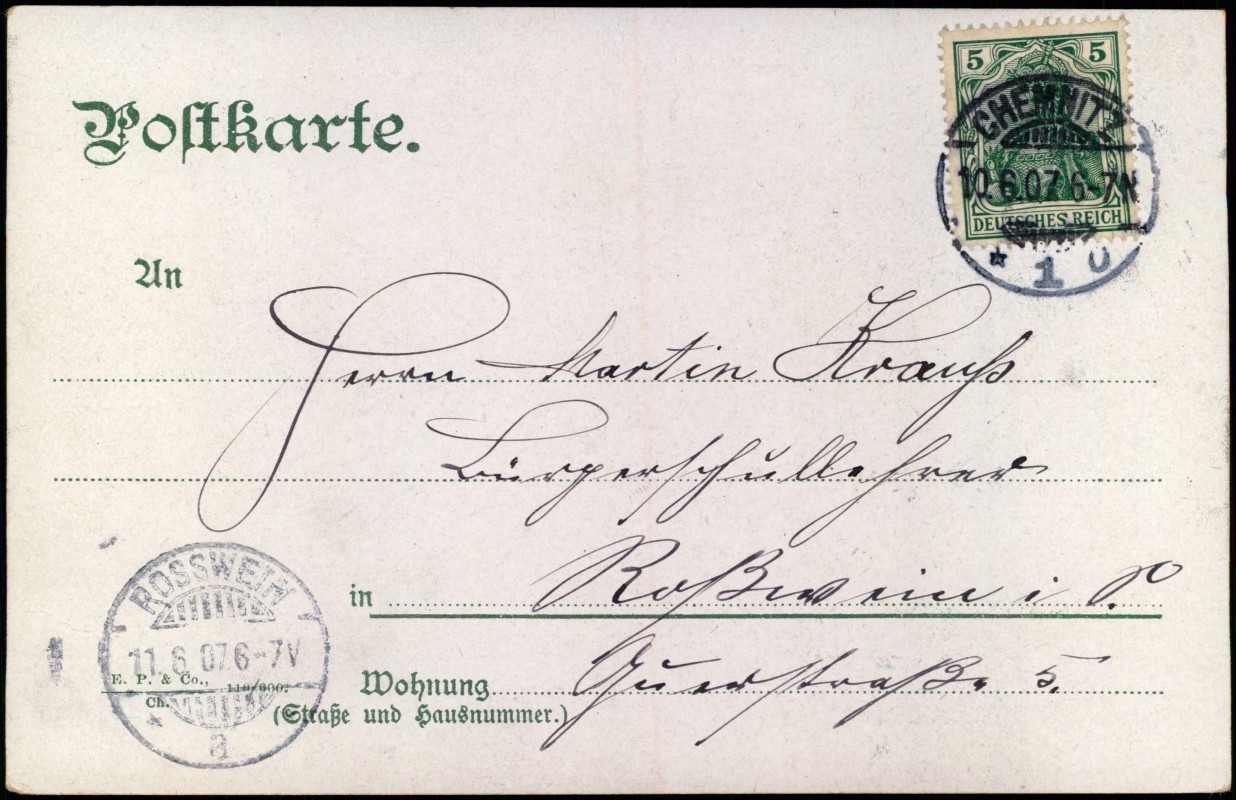 Postkarte.
5 5
CHEMNITZ
10.6.07.6-7N
DEUTSCHES REICH
* 1 0
An
Herrn Martin Krauß
Bürgerschullehrer
in Roßwein i. S.
ROSSWEIN
11.6.07.6-7V
* a
E. P. & Co., 110/000.
Ch.
Wohnung Querstraße 5.
(Straße und Hausnummer.)